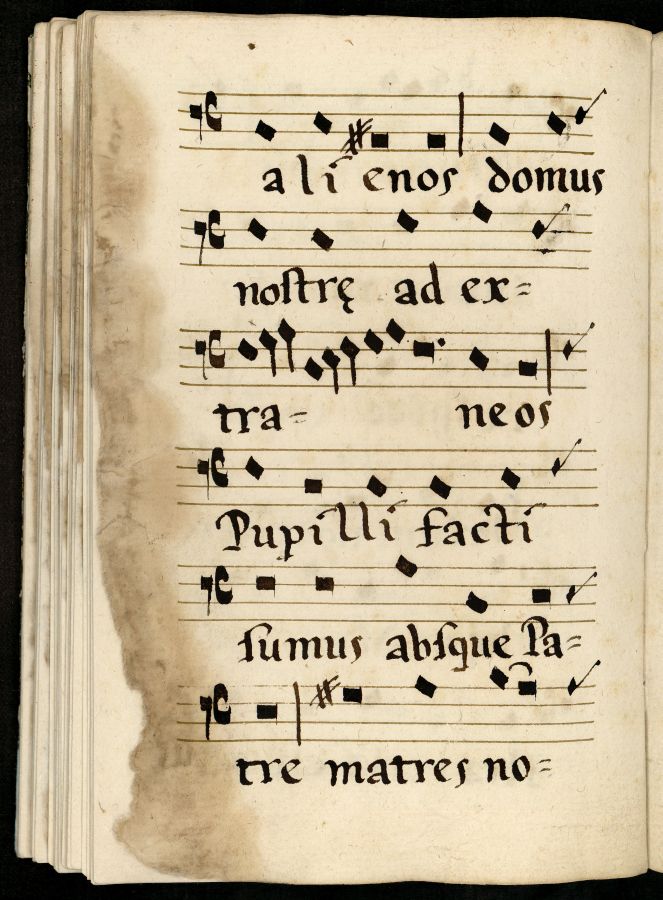 ali enos domus
noſtrę ad ex=
tra= neos
Pupilli facti
ſumus abſque Pa=
tre matres no=